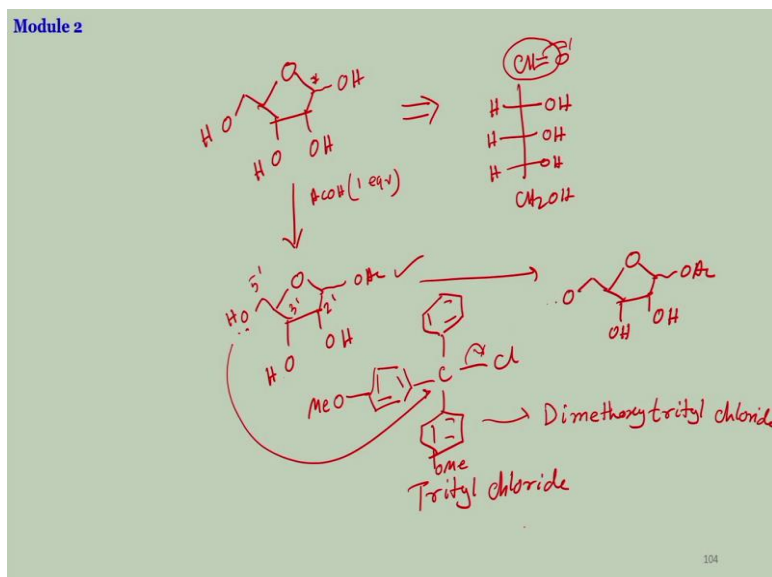 Module 2
O
OH
HO
HO OH
CH=O
H OH
H OH
H OH
CH2OH
AcOH (1 eqv)
5'
HO
O
OAc
3' 2'
HO OH
O
OAc
O
OH OH
C Cl
MeO
OMe
Dimethoxytrityl chloride
Trityl chloride
104